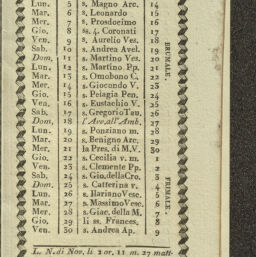 Lun. 5 s. Magno Arc. 14
Mar. 6 s. Leonardo 15
Mer. 7 s. Prosdocimo 16
Gio. 8 ss. 4. Coronati 17
Ven. 9 s. Aurelio Ves. 18
Sab. 10 s. Andrea Avel. 19
Dom. 11 s. Martino Ves. 20
Lun. 12 s. Martino Pp. 21
Mar. 13 s. Omobono C. 22
Mer. 14 s. Giocondo V. 23
Gio. 15 s. Pelagia Pen. 24
Ven. 16 s. Eustachio V. 25
Sab. 17 s. Gregorio Tau. 26
Dom. 18 l'Avv.all'Amb. 27
Lun. 19 s. Ponziano m. 28
Mar. 20 s. Benigno Arc. 29
Mer. 21 la Pres. di M.V. 30
Gio. 22 s. Cecilia v. m. 1
Ven. 23 s. Clemente Pp. 2
Sab. 24 s. Gio. della Cro. 3
Dom. 25 s. Catterina v. 4
Lun. 26 s. Ilariano Vesc. 5
Mar. 27 s. Massimo Vesc. 6
Mer. 28 s. Giac. della M. 7
Gio. 29 li ss. Frances. 8
Ven. 30 s. Andrea Ap. 9
BRUMALE.
FRIMALE.
L. N. di Nov. li 2 or. 11 m. 27 matt-